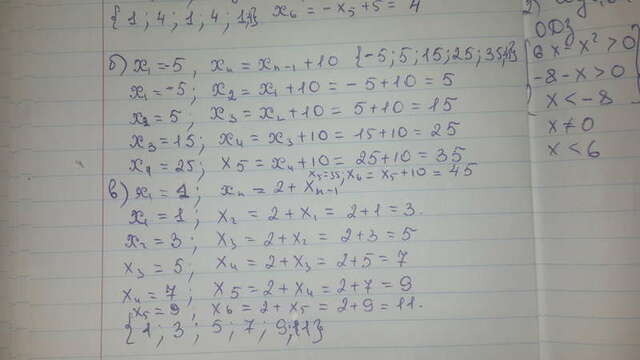 {1; 4; 1; 4; 1;} x₆ = -x₅+5 = 4
б) x₁=-5, xₙ = xₙ₋₁+10 {-5; 5; 15; 25; 35;}
x₁=-5; x₂ = x₁+10 = -5+10 = 5
x₂=5; x₃ = x₂+10 = 5+10 = 15
x₃=15; x₄ = x₃+10 = 15+10 = 25
x₄=25; x₅ = x₄+10 = 25+10 = 35
x₅=35; x₆ = x₅+10 = 45
в) x₁=1; xₙ = 2+xₙ₋₁
x₁=1; x₂ = 2+x₁ = 2+1 = 3.
x₂=3; x₃ = 2+x₂ = 2+3 = 5
x₃=5; x₄ = 2+x₃ = 2+5 = 7
x₄=7; x₅ = 2+x₄ = 2+7 = 9
x₅=9; x₆ = 2+x₅ = 2+9 = 11.
{1; 3; 5; 7; 9; 11}
2)
ОДЗ
6x²-x²>0
-8-x>0
x<-8
x≠0
x<6